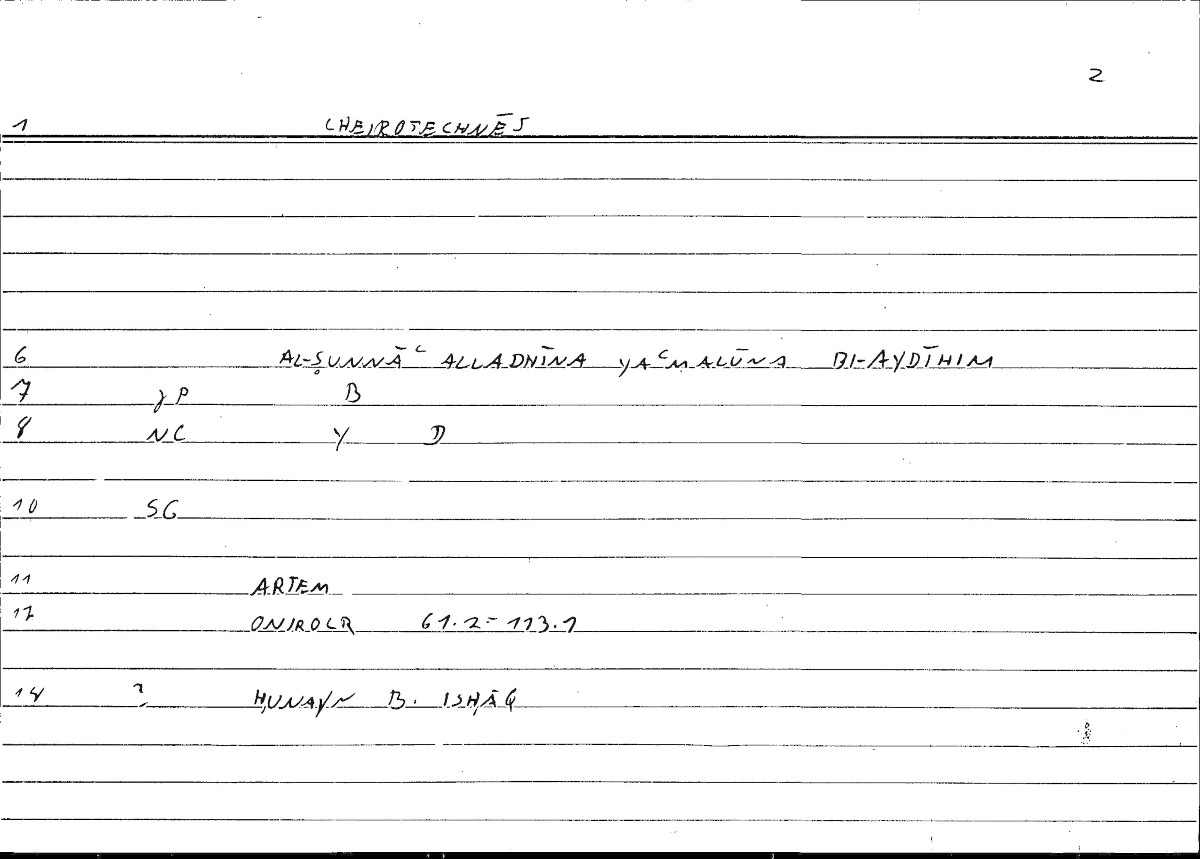 2
1 CHEIROTECHNĒS
6 AL-ṢUNNĀʿ ALLADHĪNA YAʿMALŪNA BI-AYDĪHIM
7 γP B
8 NC Y D
10 SG
11 ARTEM
12 ONIROCR 61.2=113.1
14 ? ḤUNAYN B. ISḤĀQ